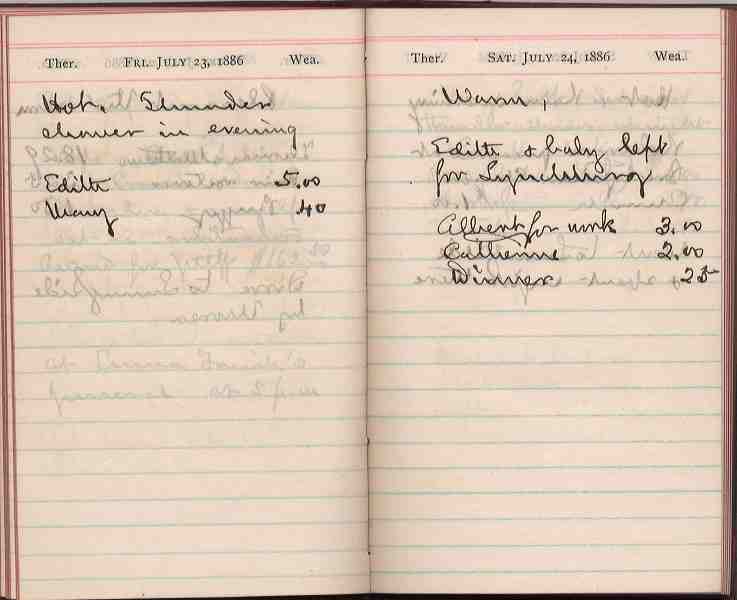 Ther. FRI. JULY 23, 1886 Wea.
Hot. Thunder
shower in evening
Edith 5.00
Mary 40
Ther. SAT. JULY 24, 1886 Wea.
Warm,
Edith & baby left
for Lynchburg
Albert for work 3.00
Catherine 2.00
Dinner 25